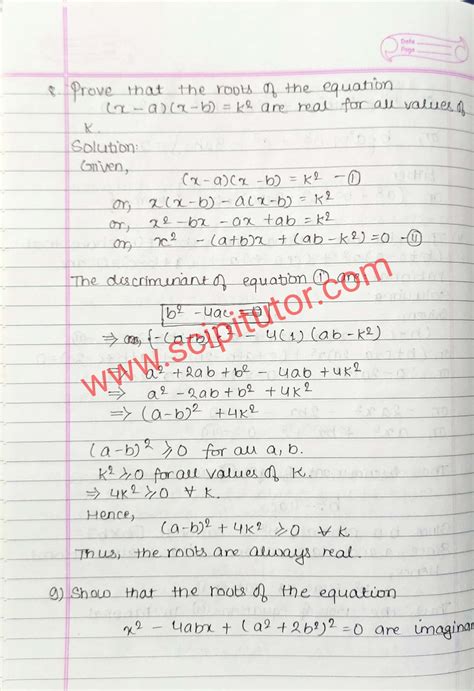 Date
Page
8. Prove that the roots of the equation
(x-a)(x-b) = k² are real for all values of
k.
Solution:
Given,
(x-a)(x-b) = k² - ⓘ
or, x(x-b) - a(x-b) = k²
or, x² - bx - ax + ab = k²
or, x² - (a+b)x + (ab-k²) = 0 - ⓘⓘ
The discriminant of equation ⓘ are:
b² - 4ac = 0
⇒ or, {-(a+b)}² - 4(1)(ab-k²)
⇒ a² + 2ab + b² - 4ab + 4k²
⇒ a² - 2ab + b² + 4k²
⇒ (a-b)² + 4k²
(a-b)² ⩾ 0 for all a, b.
k² ⩾ 0 for all values of k.
⇒ 4k² ⩾ 0 ∀ k.
Hence,
(a-b)² + 4k² ⩾ 0 ∀ k
Thus, the roots are always real.
9) Show that the roots of the equation
x² - 4abx + (a² + 2b²)² = 0 are imaginar
www.scipitutor.com